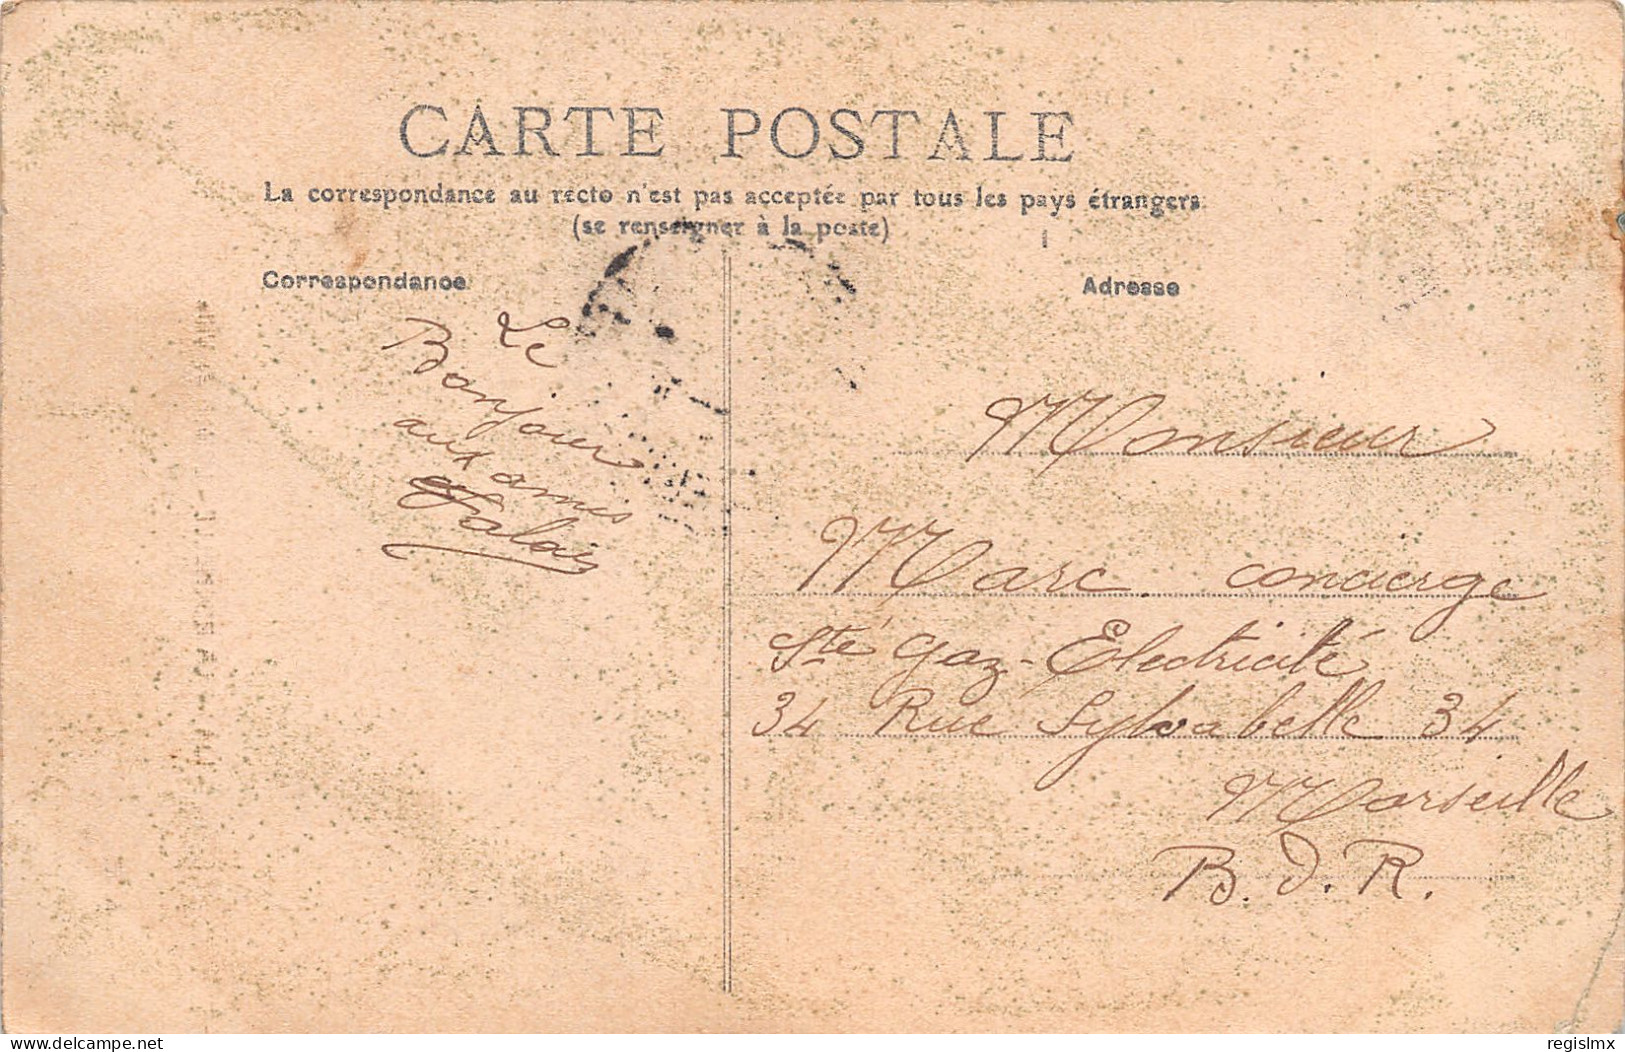 CARTE POSTALE
La correspondance au recto n'est pas acceptée par tous les pays étrangers
(se renseigner à la poste)
Correspondance
Adresse
Le
Bonjour
aux amis
Monsieur
Marc concierge
Sté Gaz-Electricité
34 Rue Sylvabelle 34
Marseille
B.d.R.
delcampe.net
regislmx